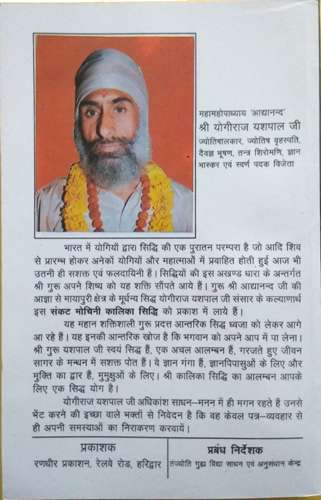 महामहोपाध्याय 'आद्यानन्द'
श्री योगीराज यशपाल जी
ज्योतिषालंकार, ज्योतिष वृहस्पति,
दैवज्ञ भूषण, तन्त्र शिरोमणि, ज्ञान
भास्कर एवं स्वर्ण पदक विजेता
भारत में योगियों द्वारा सिद्धि की एक पुरातन परम्परा है जो आदि शिव
से प्रारम्भ होकर अनेकों योगियों और महात्माओं में प्रवाहित होती हुई आज भी
उतनी ही सशक्त एवं फलदायिनी हैं। सिद्धियों की इस अखण्ड धारा के अन्तर्गत
श्री गुरू अपने शिष्य को यह शक्ति सौंपते आये हैं। गुरू श्री आद्यानन्द जी की
आज्ञा से मायापुरी क्षेत्र के मूर्धन्य सिद्ध योगीराज यशपाल जी संसार के कल्याणार्थ
इस संकट मोचिनी कालिका सिद्धि को प्रकाश में लाये हैं।
यह महान शक्तिशाली गुरू प्रदत्त आन्तरिक सिद्धि ध्वजा को लेकर आगे
आ रहे हैं। यह इनकी आन्तरिक खोज है कि भगवान को अपने आप में पा लेना।
श्री गुरू यशपाल जी स्वयं सिद्ध हैं, एक अचल आलम्बन हैं, गरजते हुए जीवन
सागर के मन्थन में सशक्त पोत हैं। ये ज्ञान गंगा हैं, ज्ञानपिपासुओं के लिए और
मुक्ति का द्वार हैं, मुमुक्षुओं के लिए। श्री कालिका सिद्धि का आलम्बन आपके
लिए एक सिद्ध योग है।
योगीराज यशपाल जी अधिकांश साधन–मनन में ही मगन रहते हैं उनसे
भेंट करने की इच्छा वाले भक्तों से निवेदन है कि वह केवल पत्र–व्यवहार से
ही अपनी समस्याओं का निराकरण करवायें।
प्रकाशक
रणधीर प्रकाशन, रेलवे रोड, हरिद्वार
प्रबंध निर्देशक
गुह्य विद्या साधन एवं अनुसंधान केन्द्र